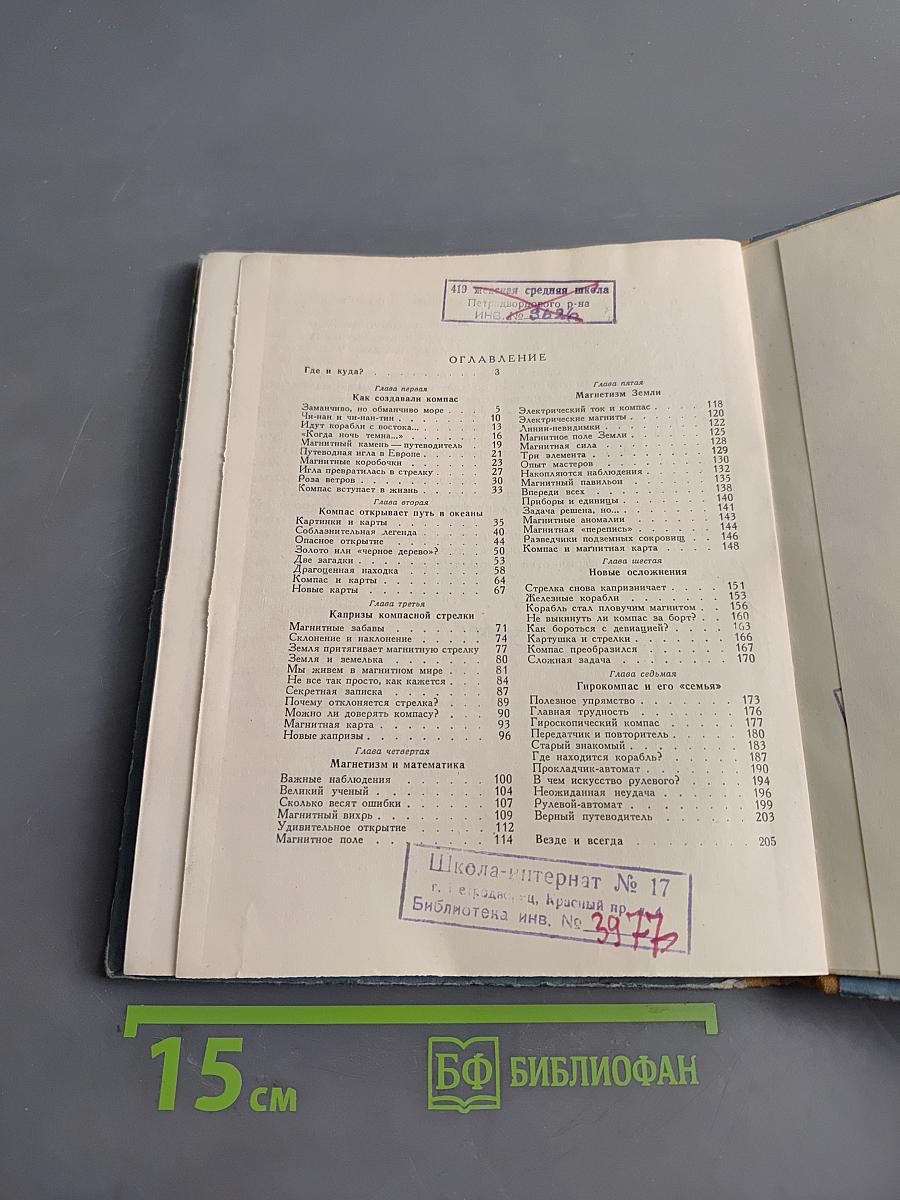 419 женская средняя школа
Петродворцового р-на
ИНВ. №
ОГЛАВЛЕНИЕ
Где и куда? . . . . . . . . . . 3
Глава первая
Как создавали компас
Заманчиво, но обманчиво море . . . 5
Чи-нан и чи-нан-тин . . . . . . . 10
Идут корабли с востока... . . . . . 13
«Когда ночь темна...» . . . . . . 16
Магнитный камень — путеводитель . 19
Путеводная игла в Европе . . . . . 21
Магнитные коробочки . . . . . . 23
Игла превратилась в стрелку . . . . 27
Роза ветров . . . . . . . . . . 30
Компас вступает в жизнь . . . . . 33
Глава вторая
Компас открывает путь в океаны
Картинки и карты . . . . . . . 35
Соблазнительная легенда . . . . . 40
Опасное открытие . . . . . . . 44
Золото или «черное дерево»? . . . . 50
Две загадки . . . . . . . . . . 53
Драгоценная находка . . . . . . 58
Компас и карты . . . . . . . . 64
Новые карты . . . . . . . . . 67
Глава третья
Капризы компасной стрелки
Магнитные забавы . . . . . . . 71
Склонение и наклонение . . . . . 74
Земля притягивает магнитную стрелку 77
Земля и земелька . . . . . . . 80
Мы живем в магнитном мире . . . . 81
Не все так просто, как кажется . . . 84
Секретная записка . . . . . . . 87
Почему отклоняется стрелка? . . . . 89
Можно ли доверять компасу? . . . . 90
Магнитная карта . . . . . . . . 93
Новые капризы . . . . . . . . 96
Глава четвертая
Магнетизм и математика
Важные наблюдения . . . . . . 100
Великий ученый . . . . . . . . 104
Сколько весят ошибки . . . . . . 107
Магнитный вихрь . . . . . . . 109
Удивительное открытие . . . . . 112
Магнитное поле . . . . . . . . 114
Глава пятая
Магнетизм Земли
Электрический ток и компас . . . . 118
Электрические магниты . . . . . . 120
Линии-невидимки . . . . . . . . 122
Магнитное поле Земли . . . . . . 125
Магнитная сила . . . . . . . . 128
Три элемента . . . . . . . . . 129
Опыт мастеров . . . . . . . . 130
Накопляются наблюдения . . . . . 132
Магнитный павильон . . . . . . 135
Впереди всех . . . . . . . . . 138
Приборы и единицы . . . . . . . 140
Задача решена, но... . . . . . . . 141
Магнитные аномалии . . . . . . 143
Магнитная «перепись» . . . . . . 144
Разведчики подземных сокровищ . . 146
Компас и магнитная карта . . . . . 148
Глава шестая
Новые осложнения
Стрелка снова капризничает . . . . 151
Железные корабли . . . . . . . 153
Корабль стал пловучим магнитом . . 156
Не выкинуть ли компас за борт? . . 160
Как бороться с девиацией? . . . . 163
Картушка и стрелки . . . . . . . 166
Компас преобразился . . . . . . 167
Сложная задача . . . . . . . . 170
Глава седьмая
Гирокомпас и его «семья»
Полезное упрямство . . . . . . . 173
Главная трудность . . . . . . . 176
Гироскопический компас . . . . . 177
Передатчик и повторитель . . . . . 180
Старый знакомый . . . . . . . . 183
Где находится корабль? . . . . . . 187
Прокладчик-автомат . . . . . . . 190
В чем искусство рулевого? . . . . 194
Неожиданная неудача . . . . . . 196
Рулевой-автомат . . . . . . . . 199
Верный путеводитель . . . . . . 203
Везде и всегда . . . . . . . . 205
Школа-интернат № 17
г. Петродворец, Красный пр.
Библиотека инв. № 3977
15 см
БФ БИБЛИОФАН